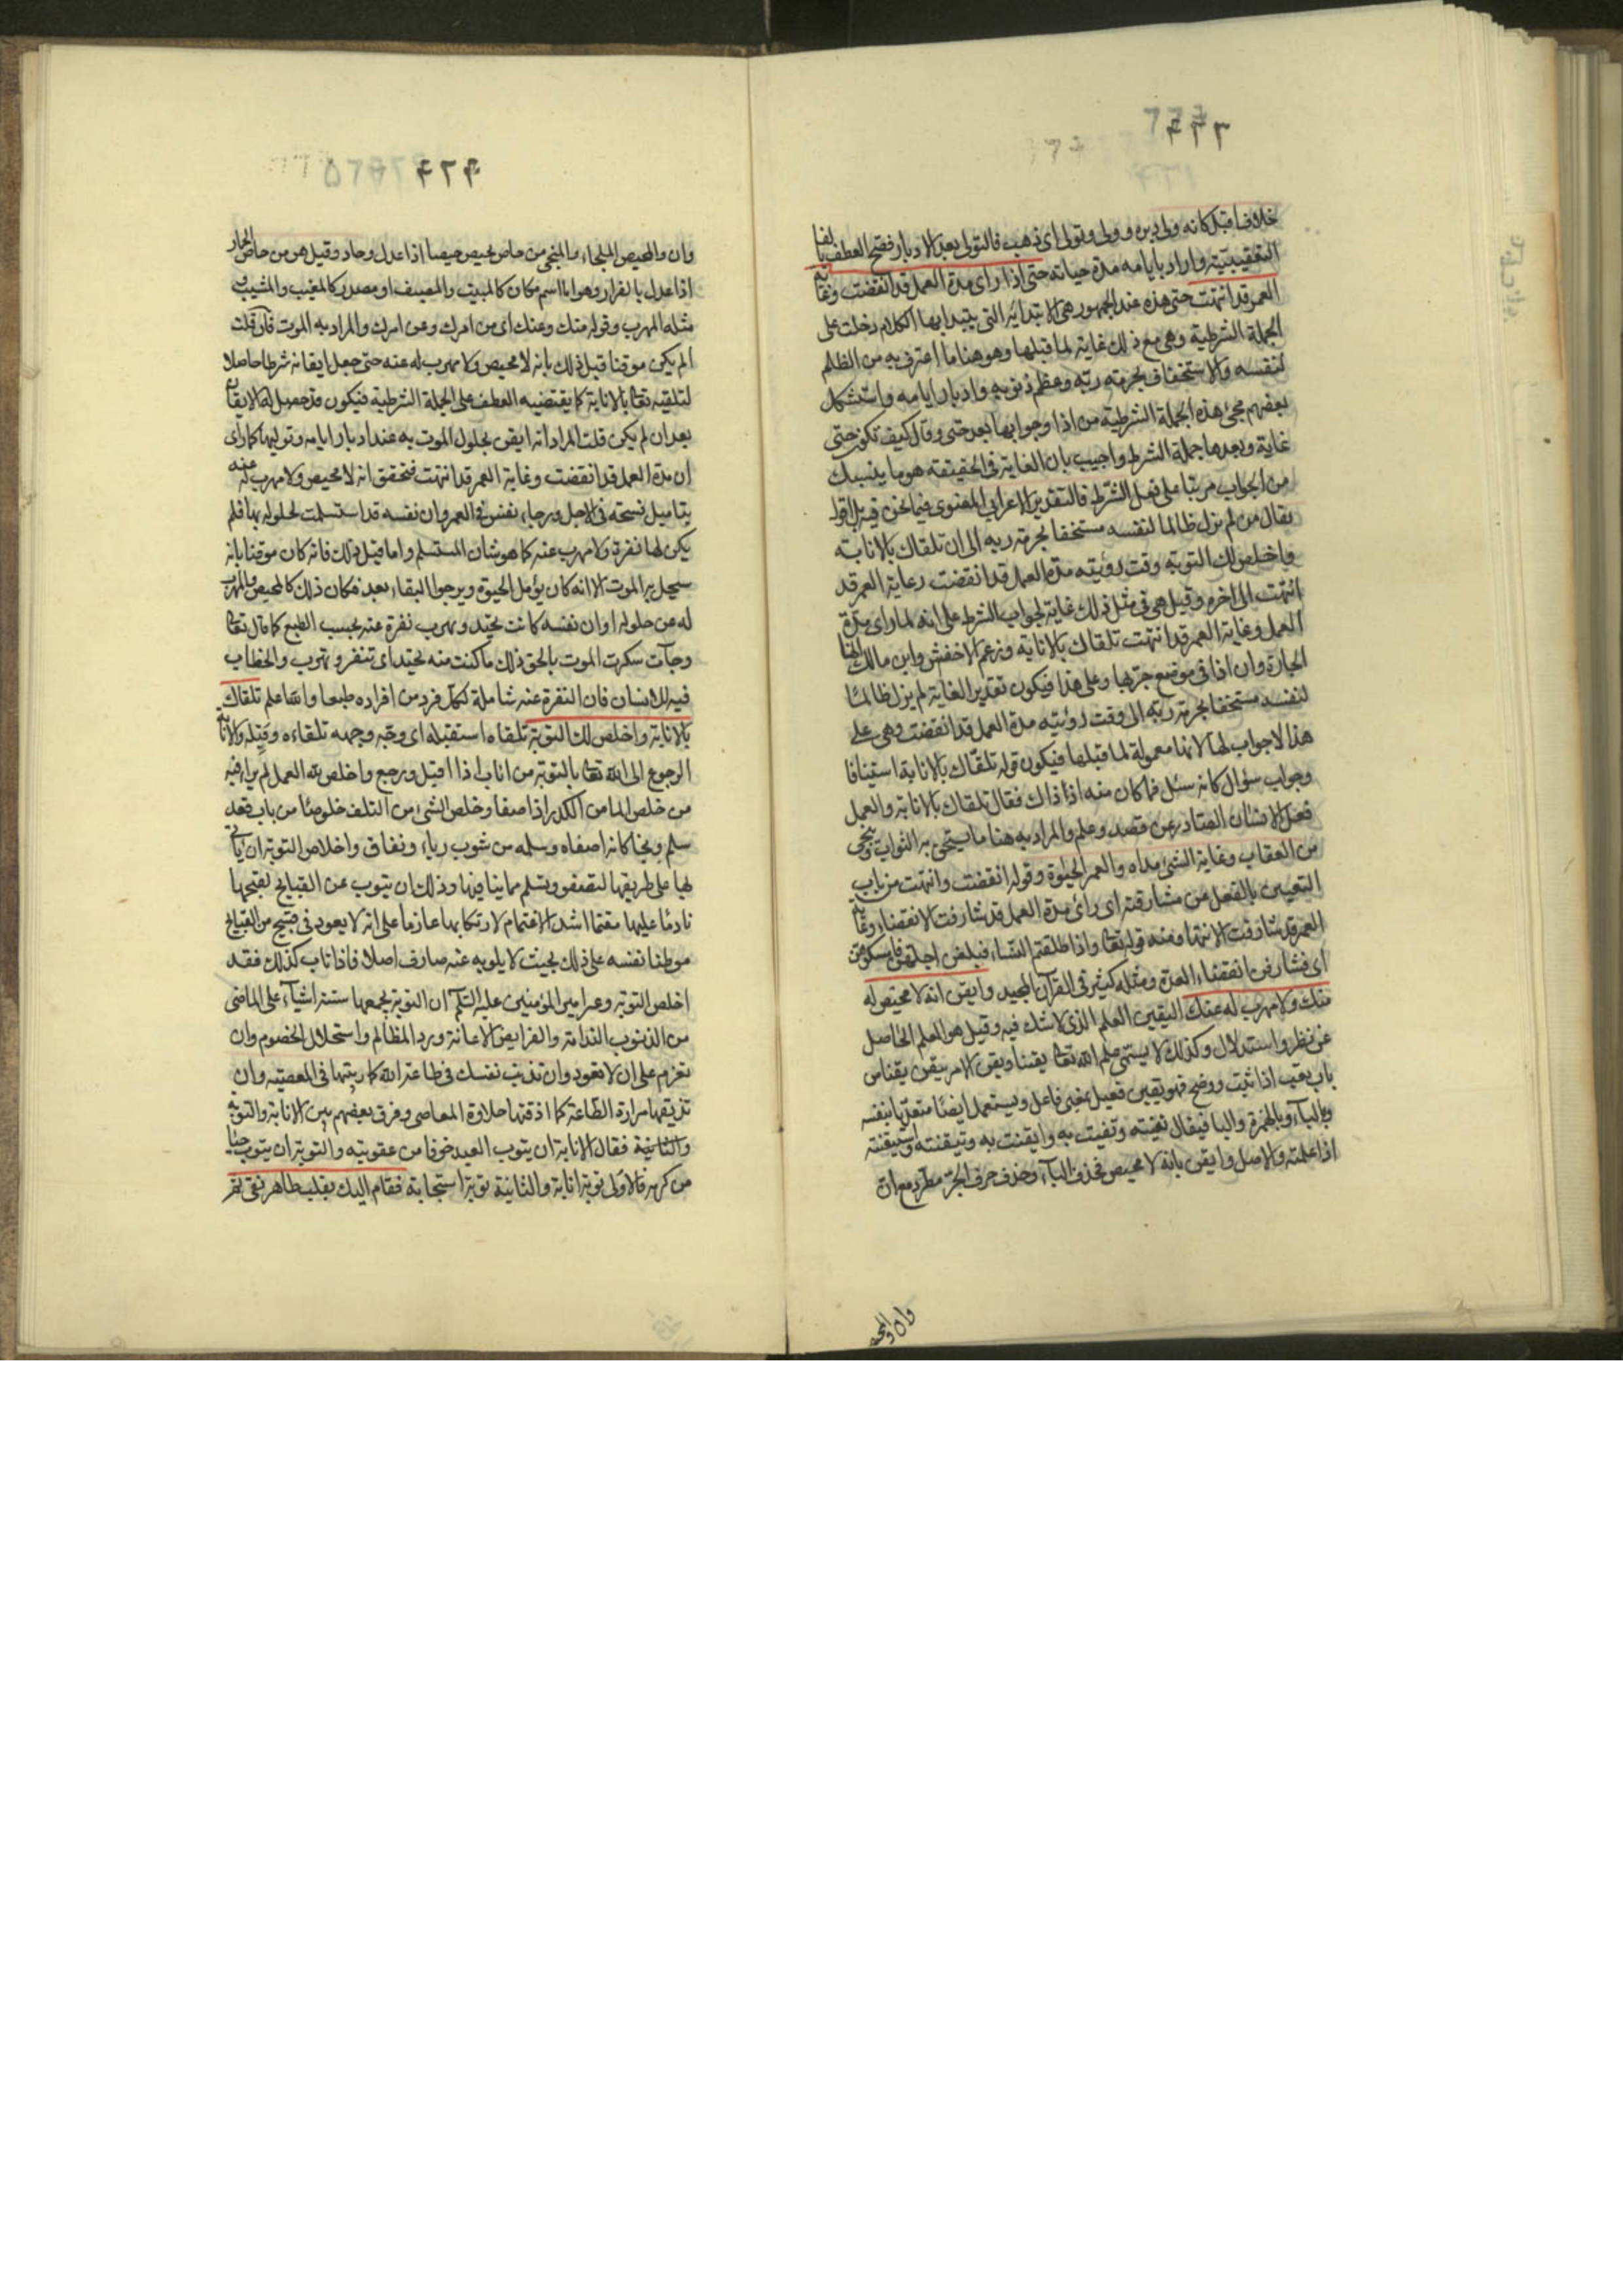 خلاف اقبل كانه ولى دبره وولى وتولى اى ذهب فالتولى بعد الادبار فصح العطف بالفا
التعقيبية واراد بايامه مدة حياته حتى اذا راى مدة العمل قد انقضت وغاية
العمر قد انتهت حتى هذه عند الجمهور هى الابتدائية التى يبتدا بها الكلام دخلت على
الجملة الشرطية وهى مع ذلك غاية لما قبلها وهو هنا ما اعترف به من الظلم
لنفسه والاستخفاف بحرمة ربه وعظم ذنوبه وادبار ايامه واستشكل
بعضهم مجئ هذه الجملة الشرطية من اذا وجوابها بعد حتى وقال كيف تكون حتى
غاية وبعدها جملة الشرط واجيب بان الغاية فى الحقيقة هو ما ينسبك
من الجواب مرتبا على فعل الشرط فالتقدير الاعرابي المعنوى فيما نحن فيه
يقال من لم يزل ظالما لنفسه مستخفا بحرمة ربه الى ان تلقاك بالانابة
واخلص لك التوبة وقت رؤيته مدة العمل قد انقضت وغاية العمر قد
انتهت الى اخره وقيل هى فى مثل ذلك غاية لجواب الشرط على انه لما راى مدة
العمل وغاية العمر قد انتهت تلقاك بالانابة وزعم الاخفش وابن مالك انها
الجارة وان اذا فى موضع جر بها وعلى هذا فيكون تقدير الغاية لم يزل ظالما
لنفسه مستخفا بحرمة ربه الى وقت رؤيته مدة العمل قد انقضت وهى على
هذا لاجواب لها لانها معمولة لما قبلها فيكون قوله تلقاك بالانابة استينافا
وجواب سؤال كانه سئل فما كان منه اذا ذاك فقال تلقاك بالانابة والعمل
فعل الانسان الصادر عن قصد وعلم والمراد به هنا ما يستحق به الثواب وينجى
من العقاب وغاية الشئ مداه والعمر الحيوة وقوله انقضت وانتهت من باب
التعبير بالفعل عن مشارفته اى راى مدة العمل قد شارفت الانقضاء وغاية
العمر قد شارفت الانتها ومنه قوله تعا واذا طلقتم النساء فبلغن اجلهن فامسكوهن
اى فشارفن انقضاء العدة ومثله كثير فى القرآن المجيد وايقن انه لا محيص له
منك ولا مهرب له عنك اليقين العلم الذى لا شك فيه وقيل هو العلم الحاصل
عن نظر واستدلال وكذلك لا يسمى علم الله تعا يقينا ويقن الامر ييقن يقنا من
باب تعب اذا ثبت ووضح فهو يقين فعيل بمعنى فاعل ويستعمل ايضا متعديا بنفسه
وبالباء وبالهمزة والبا فيقال يقنته ويقنت به وايقنت به وتيقنته واستيقنته
اذا علمته والاصل وايقن بانه لا محيص فحذف الباء وحذف حرف الجر مطرد مع ان
وان والمحي
وان والمحيص الملجاء والمنجى من حاص يحيص حيصا اذا عدل وحاد وقيل هو من حاص الحمار
اذا عدل بالفرار وهو اما اسم مكان كالمبيت والمصيف او مصدر كالمغيب والمشيب و
مثله المهرب وقوله منك وعنك اى من امرك وعن امرك والمراد به الموت فان قلت
الم يكن موقنا قبل ذلك بانه لا محيص ولا مهرب له عنه حتى جعل ايقانه شرطا حاصلا
لتلقيه تعا بالانابة كما يقتضيه العطف على الجملة الشرطية فيكون قد حصل له الايقان
بعد ان لم يكن قلت المراد انه ايقن بحلول الموت به عند ادبار ايامه وتوليها كما راى
ان مدة العمل قد انقضت وغاية العمر قد انتهت فتحقق انه لا محيص ولا مهرب له عنه
بتاميل فسحة فى الاجل ورجاء نفس فى العمر وان نفسه قد استسلمت لحلوله بها فلم
يكن لها نفرة ولا مهرب عنه كما هو شان المستسلم واما قبل ذلك فانه كان موقنا بانه
سيحل به الموت الا انه كان يؤمل الحيوة ويرجو البقاء بعد فكان ذلك كالمحيص والمهرب
له عن حلوله او ان نفسه كانت تحيد وتهرب نفرة عنه بحسب الطبع كما قال تعا
وجآت سكرت الموت بالحق ذلك ما كنت منه تحيد اى تنفر وتهرب والخطاب
فيه للانسان فان النفرة عنه شاملة لكل فرد من افراده طبعا والله اعلم تلقاك
بالانابة واخلص لك التوبة تلقاه استقبله اى وجه وجهه تلقاءه وقبله والانابة
الرجوع الى الله تعا بالتوبة من اناب اذا اقبل ورجع واخلص لله العمل لم يراء فيه
من خلص الما من الكدر اذا صفا وخلص الشئ من التلف خلوصا من باب قعد
سلم ونجا كانه اصفاه وسلمه من شوب رياء ونفاق واخلاص التوبة ان ياتى
بها على طريقها لتصفو وتسلم مما ينافيها وذلك ان يتوب عن القبايح لقبحها
نادما عليها مغتما اشد الاغتمام لارتكابها عازما على انه لا يعود فى قبيح من القبايح
موطنا نفسه على ذلك بحيث لا يلويه عنه صارف اصلا فاذا تاب كذلك فقد
اخلص التوبة وعن امير المؤمنين عليه السلم ان التوبة يجمعها ستة اشياء على الماضى
من الذنوب الندامة والفرايض الاعادة ورد المظالم واستحلال الخصوم وان
تعزم على ان لا تعود وان تذيب نفسك فى طاعة الله كما ربيتها فى المعصية وان
تذيقها مرارة الطاعة كما اذقتها حلاوة المعاصى وفرق بعضهم بين الانابة والتوبة
والثانية فقال الانابة ان يتوب العبد خوفا من عقوبته والتوبة ان يتوب حياء
من كرمه فالاولى توبة انابة والثانية توبة استجابة فقام اليك بقلب طاهر نقى ثم